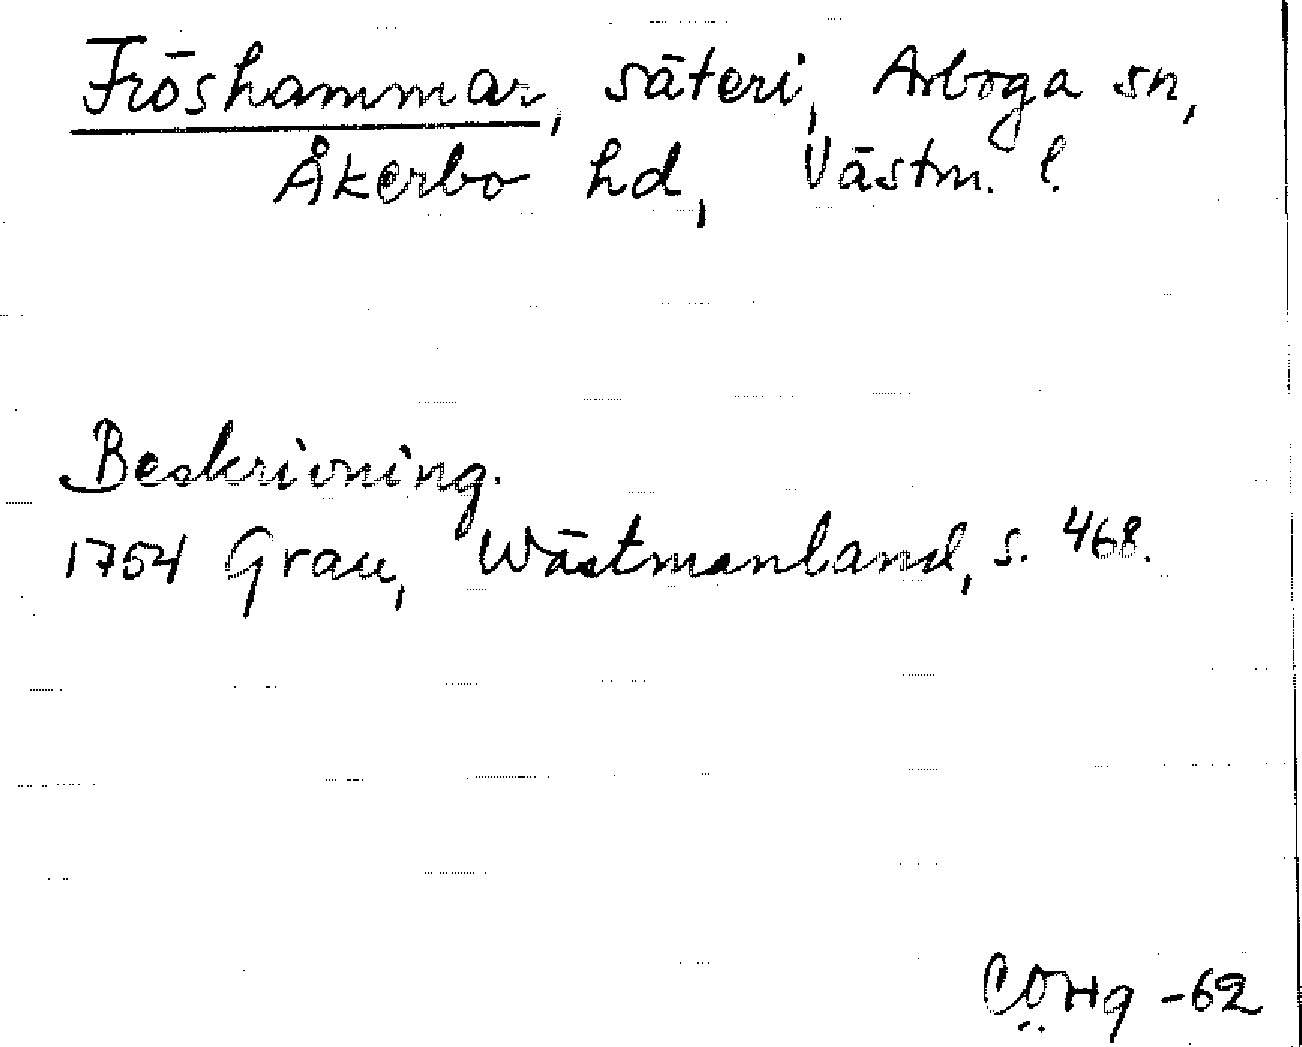 Fröshammar, säteri, Arboga sn,
Åkerbo hd, Västm. l.
Beskrivning.
1754 Grau, Wästmanland, s. 468.
CÖHg -62